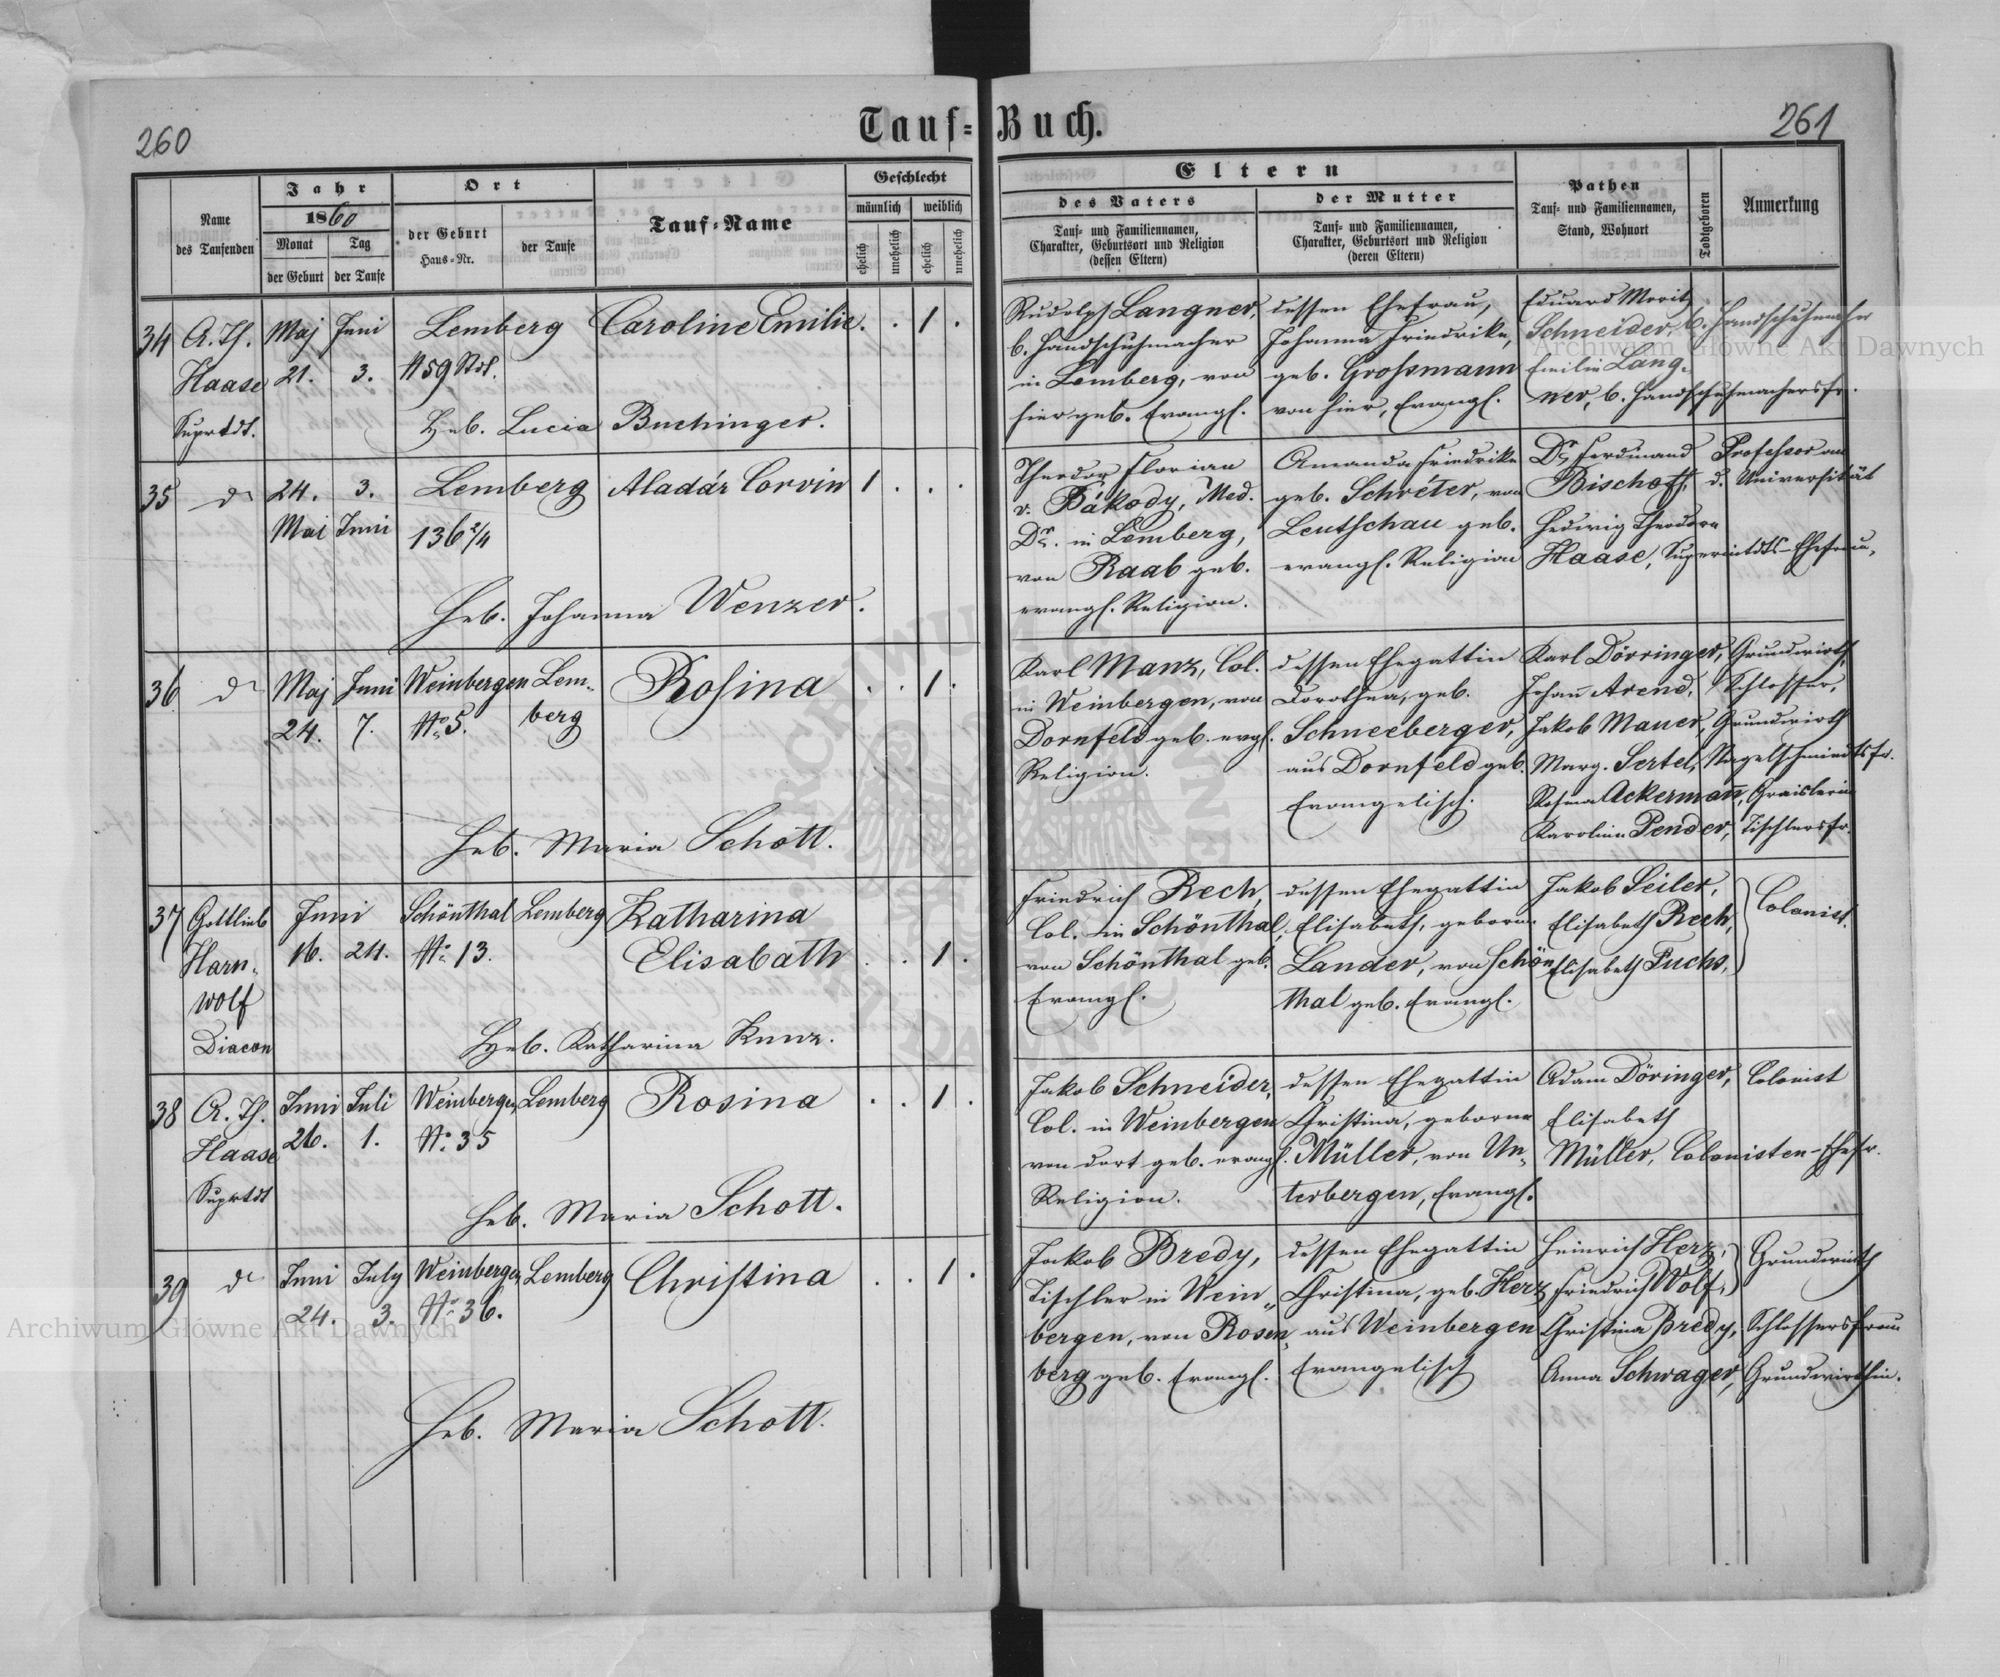 260
Tauf=Buch.
261
Name
des Taufenden
Jahr
1860
Monat
der Geburt
Tag
der Taufe
Ort
der Geburt
Haus=Nr.
der Taufe
Tauf=Name
Geschlecht
männlich
weiblich
ehelich
unehelich
ehelich
unehelich
Eltern
des Vaters
Tauf= und Familiennamen,
Charakter, Geburtsort und Religion
(dessen Eltern)
der Mutter
Tauf= und Familiennamen,
Charakter, Geburtsort und Religion
(deren Eltern)
Pathen
Tauf= und Familiennamen,
Stand, Wohnort
Todtgeboren
Anmerkung
34
A. Th.
Haase
Suprtdt.
Maj
21.
Juni
3.
Lemberg
Caroline Emilie.
. . 1 .
Heb. Lucia Buchinger.
Rudolph Langner,
b. Handschuhmacher
in Lemberg, von
hier geb. Evangl.
dessen Ehefrau,
Johanna Friedrike,
geb. Grossmann
von hier, Evangl.
Eduard Moritz
Schneider, b. Handschuhmacher
Emilie Lang-
ner, b. Handschuhmachersfr.
35
do
24.
Mai
3.
Juni
Lemberg
136 2/4
Aladár Corvin
1 . . .
Heb. Johanna Wenzer.
Theodor Florian
v. Bákody, Med.
Dr. in Lemberg,
von Raab geb.
evangl. Religion.
Amanda Friedrike
geb. Schréter, von
Leutschau geb.
evangl. Religion
Dr Ferdinand Professor an
Bischoff, d. Universität
Hedwig Theodora
Haase, Superintdts-Ehefrau,
36
do
Maj
24.
Juni
7.
Weinbergen
No. 5.
Lem-
berg
Rosina
. . 1 .
Heb. Maria Schott.
Karl Manz, Col.
in Weinbergen, von
Dornfeld geb. evgl.
Religion.
dessen Ehegattin
Dorothea, geb.
Schneeberger,
aus Dornfeld geb.
Evangelisch.
Karl Dörringer, Grundwirth,
Johan̄ Arend, Schlosser,
Jakob Mauer, Grundwirth
Marg. Sertel, Nagelschmiedtsfr.
Rosina Ackerman̄, Graislerin
Karolina Pender, Tischlersfr.
37
Gottlieb
Harn-
wolf
Diacon
Juni
16. 24.
Schönthal
No. 13.
Lemberg
Katharina
Elisabath
. . 1 .
Heb. Katharina Kunz.
Friedrich Rech,
Col. in Schönthal,
von Schönthal geb.
Evangl.
dessen Ehegattin
Elisabeth, geborne
Lander, von Schön
thal geb. Evangl.
Jakob Seiler,
Elisabeth Rech,
Elisabeth Fuchs,
Colonist.
38
A. Th.
Haase
Suprtdt
Juni
26.
Juli
1.
Weinbergen
No. 35
Lemberg
Rosina
. . 1 .
Heb. Maria Schott.
Jakob Schneider,
Col. in Weinbergen
von dort geb. evangl.
Religion.
dessen Ehegattin
Christina, geborne
Müller, von Un-
terbergen, Evangl.
Adam Döringer, Colonist
Elisabeth
Müller, Colonisten-Ehefr.
39
do
Juni
24.
July
3.
Weinbergen
No. 36.
Lemberg
Christina
. . 1 .
Heb. Maria Schott.
Jakob Bredy,
Tischler in Wein-
bergen, von Rosen-
berg geb. Evangl.
dessen Ehegattin
Christina, geb. Herz
aus Weinbergen
Evangelisch
Heinrich Herz,
Friedrich Wolf,
Grundwirth
Christina Bredy, Schlossersfrau
Anna Schwager, Grundwirthin.
Archiwum Główne Akt Dawnych
Archiwum Główne Akt Dawnych